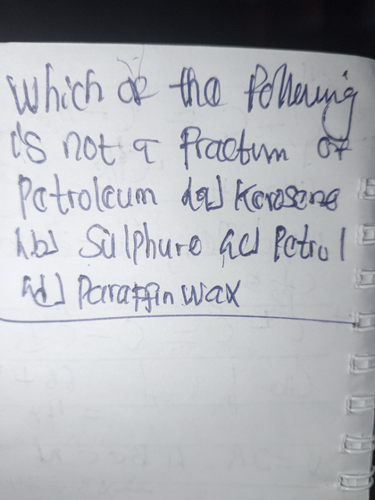 Which of the following
is not a fraction of
Petroleum (a) Kerosene
(b) Sulphure (c) Petrol
(d) Paraffin wax